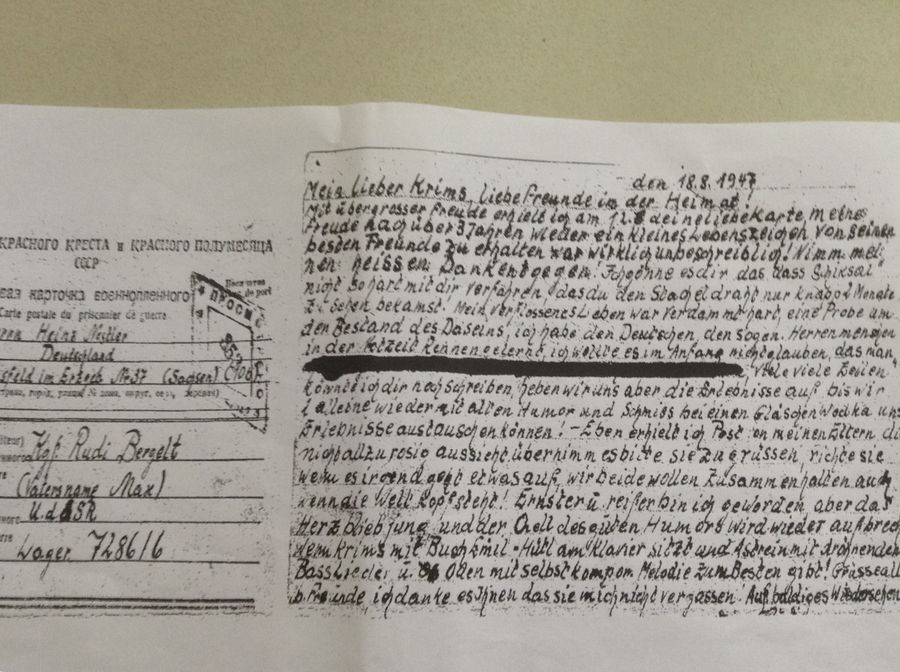 КРАСНОГО КРЕСТА и КРАСНОГО ПОЛУМЕСЯЦА
СССР
карточка военнопленного
Carte postale du prisonnier de guerre
Heinz Nestler
Deutschland
im Erzgeb No 37 (Sachsen)
Kgf. Rudi Bergelt
(Vatersname Max)
UdSSR
Lager 7286/6
den 18.8. 1947
Mein lieber Krims, liebe Freunde in der Heimat!
Mit übergrosser Freude erhielt ich am 12.8 deine liebe Karte, meine
Freude nach über 3 Jahren wieder ein kleines Lebenszeichen von seinen
besten Freunde zu erhalten war wirklich unbeschreiblich! Nimm mei-
nen heissen Dank entgegen! Ich gönne es dir das dass Schiksal
nicht so hart mit dir verfahren, das du den Stacheldraht nur knapp 2 Monate
zu sehen bekamst! Mein verflossenes Leben war verdammt hart, eine Probe um
den Bestand des Daseins, ich habe den Deutschen, den sogen. Herrenmenschen
in der Notzeit kennen gelernt, ich wollte es im Anfang nicht glauben, das man
Viele viele Zeilen
könnte ich dir noch schreiben, heben wir uns aber die Erlebnisse auf bis wir
alleine wieder mit alten Humor und Schmiss bei einen Gläschen Wodka uns
Erlebnisse austauschen können! - Eben erhielt ich Post von meinen Eltern, die
nicht allzu rosig aussieht übernimm es bitte sie zu grüssen, richte sie
wenn es irgend geht etwas auf, wir beide wollen zusammenhalten auch
wenn die Welt kopfsteht! Ernster u. reifer bin ich geworden, aber das
Herz blieb jung und der Quell des guten Humors wird wieder aufbrech
wenn Krims mit Buch Emil-Hüttl am Klavier sitzt und mit dröhnenden
Bass Lieder u. Oden mit selbst kompon Melodie zum Besten gibt! Grüsse all
Freunde ich danke es Ihnen das sie mich nicht vergassen. Auf baldiges Wiedersehen